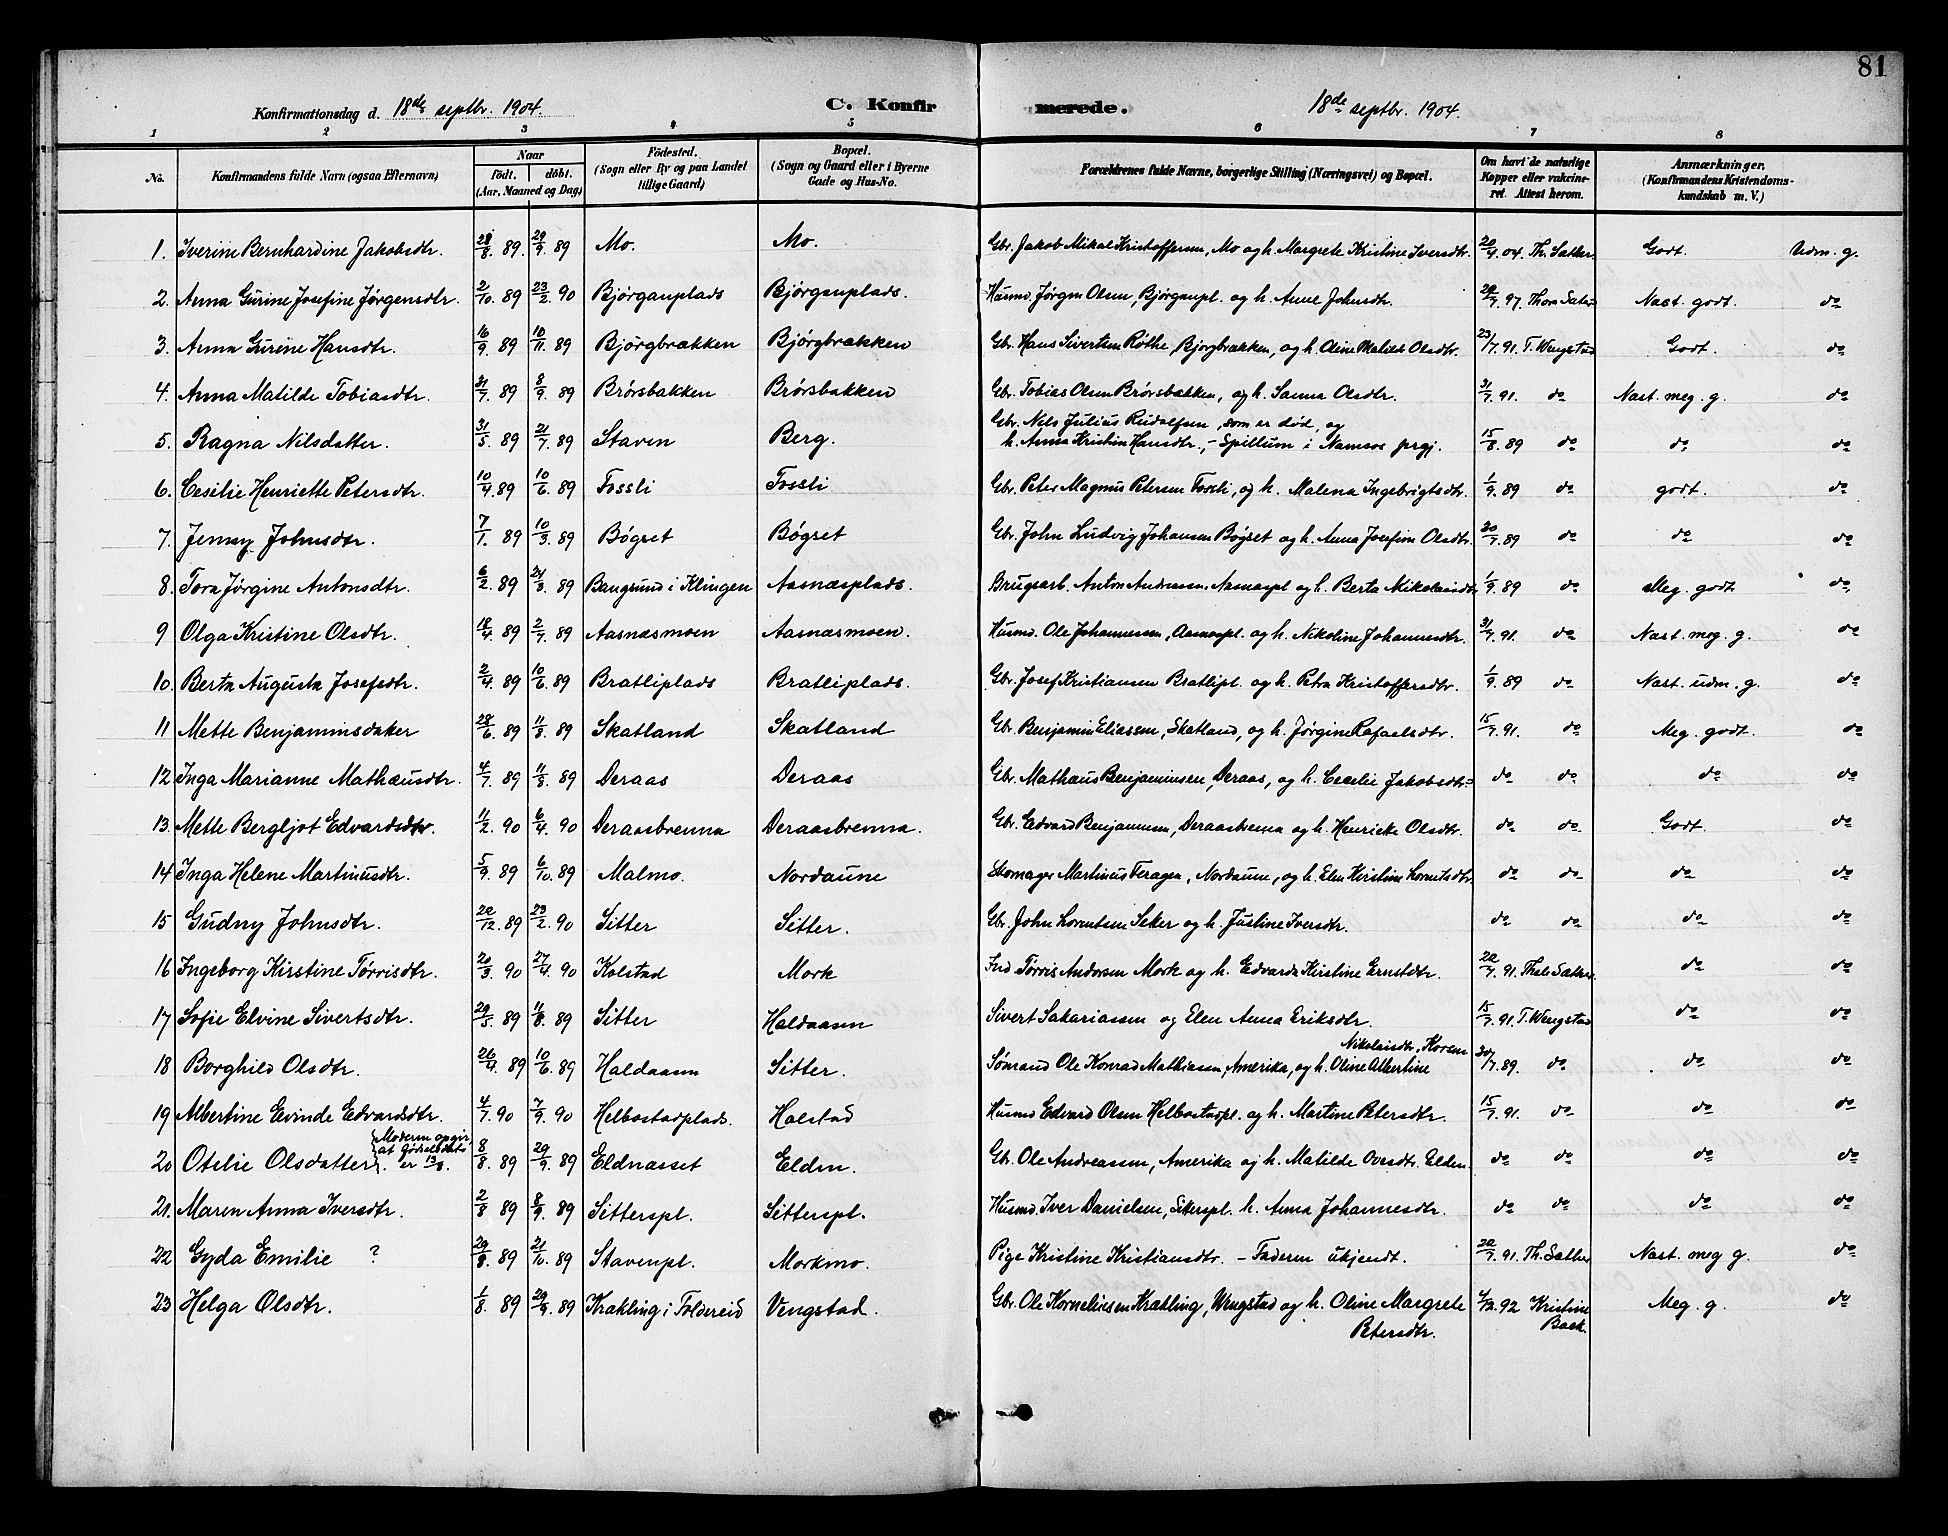 81
Konfirmationsdag d. 18de septbr. 1904. C. Konfirmerede. 18de septbr. 1904.
1 2 3 4 5 6 7 8
No. Konfirmandens fulde Navn (ogsaa Efternavn) Naar födt. döbt. (Aar, Maaned og Dag) Födested. (Sogn eller By og paa Landet tillige Gaard) Bopæl. (Sogn og Gaard eller i Byerne Gade og Hus-No. Forældrenes fulde Navne, borgerlige Stilling (Næringsvei) og Bopæl. Om havt de naturlige Kopper eller vakcineret. Attest herom. Anmærkninger. (Konfirmandens Kristendomskundskab m. V.)
1. Iverine Bernhardine Jakobsdtr. 28/8. 89. 29/9. 89 Mo. Mo. Gbr. Jakob Mikal Kristoffersen, Mo og h. Margrete Kristine Iversdtr. 20/4. 04. Th. Sæther Godt. Udm. g.
2. Anna Gurine Josefine Jørgensdtr. 2/10. 89 23/2. 90 Bjørganplads Bjørganplads. Husmd. Jørgen Olsen, Bjørganpl. og h. Anne Johnsdtr. 97. Næst. godt. do
3. Anna Gurine Hansdtr. 16/9. 89 10/11. 89 Bjørgbrækken Bjørgbrækken Gb. Hans Sivertsen Röthe, Bjørgbrækken, og h. Oline Olsdtr. 23/7. 91. T. Wengstad Godt. do
4. Anna Matilde Tobiasdtr. 31/7. 89 8/9. 89 Brørsbakken Brørsbakken Gbr. Tobias Olsen Brørsbakken, og h. Sanna Olsdtr. 31/7. 91. do Næst. meg. g. do
5. Ragna Nilsdatter. 31/5. 89 21/7. 89 Staven Berg. Gbr. Nils Julius Rudolfsen, som er død, og
h. Anna Kristine Hansdtr., - Spillum i Namsos prgj. 15/8. 89 do do do
6. Cesilie Henriette Petersdtr. 10/4. 89 10/6. 89 Fossli Fossli Gbr. Peter Magnus Petersen Fossli, og h. Malena Ingebrigtsdtr. 1/9. 89 do godt. do
7. Jenny Johnsdtr. 7/1. 89 10/3. 89 Bøgset Bøgset Gbr. John Ludvig Johansen Bøgset og h. Anna Josefine Olsdtr. 30/7. 89 do do do
8. Tora Jørgine Antonsdtr. 6/2. 89 24/3. 89 Bangsund i Klingen Aasnæsplads. Brugsarb. Anton Andreassen Aasnæspl og h. Berta Mikolaisdtr 1/9. 89 do Meg. godt do
9 Olga Kristine Olsdtr. 18/4. 89 2/7. 89 Aasnæsmoen Aasnæsmoen. Husmd. Ole Johannessen, Aasnæspl. og h. Nikoline Johannesdtr. 31/7. 91. do Næst. meg. g. do
10. Berta Augusta Josefsdtr. 2/4. 89 10/6. 89 Bratliplads Bratliplads. Gbr. Josef Kristiansen Bratlipl. og h. Petra Kristoffersdtr. 1/9. 89 do Næst. udm. g. do
11 Mette Benjaminsdatter 28/6. 89 11/8. 89 Skatland Skatland Gbr. Benjamin Eliassen, Skatland, og h. Jørgine Rafaelsdtr. 15/7. 91. do Meg. godt. do
12 Inga Marianne Mathæusdtr. 4/7. 89 11/8. 89 Deraas Deraas Gbr. Mathæus Benjaminsen, Deraas, og h. Cecelie Jakobsdtr. do do do do
13. Mette Bergljot Edvardsdtr. 11/2. 90 6/4. 90 Deraasbrenna Deraasbrenna. Gbr. Edvard Benjaminsen, Deraasbrenna og h. Henrikke Olsdtr. do do Godt. do
14 Inga Helene Martinusdtr. 5/9. 89 6/10. 89 Malmo. Nordaune Skomager Martinus Feragen, Nordaune, og h. Elen Kirstine Lorentsdtr. do do do do
15 Gudny Johnsdtr. 20/12. 89 23/2. 90 Sitter Sitter. Gb. John Lorentsen Seter og h. Justine Iversdtr. do do do do
16 Ingeborg Kirstine Tørrisdtr. 20/3. 90 27/4. 90 Kolstad Mork Ind. Tørris Andersen Mork og h. Edvarda Kirstine Ernstdtr. 91. do do
17 Sofie Elvine Sivertsdtr. 29/5. 89 11/8. 89 Sitter Haldaasen Sivert Sakariassen og Elen Anna Eriksdtr. 15/7. 91. T. Wengstad do do
18 Borghild Olsdtr. 26/4. 89 10/6. 89 Haldaasen Sitter. Sømand Ole Konrad Mathiassen, Amerika, og h. Oline Albertine Nikolaisdtr, Korsen 30/7. 89. do do do
19 Albertine Evinde Edvardsdtr. 4/7. 90 7/9. 90 Helbostadplads. Halstad Husmd Edvard Olsen Helbostadpl. og h. Martine Petersdtr. 15/7. 91. do do do
20 Otelie Olsdatter. {Moderen opgir, at fødselsdato er 13/8. 8/8. 89 29/9. 89 Eldnæsset Elden. Gb. Ole Andreassen, Amerika og h. Matilde Ovesdtr. Elden. do do do do
21. Maren Anna Iversdtr. 2/8 89 8/9. 89 Sitterspl. Sitterspl. Husmd. Iver Danielsen, Sitterspl. h. Anna Johannesdtr. do do do do
22 Gyda Emilie ? 29/8. 89 21/10. 89 Stavenpl. Morkmo. Pige Kristine Kristiansdtr. - Faderen ukjendt. 20/7. 91. Th. Sæther Næst. meg g. do
23 Helga Olsdtr. 1/8. 89 29/9. 89 Krækling i Foldereid Vengstad. Gbr. Ole Korneliussen Krækling, Wengstad og h. Oline Margrete Petersdtr. 92 Kristine Baek. Meg. g. do